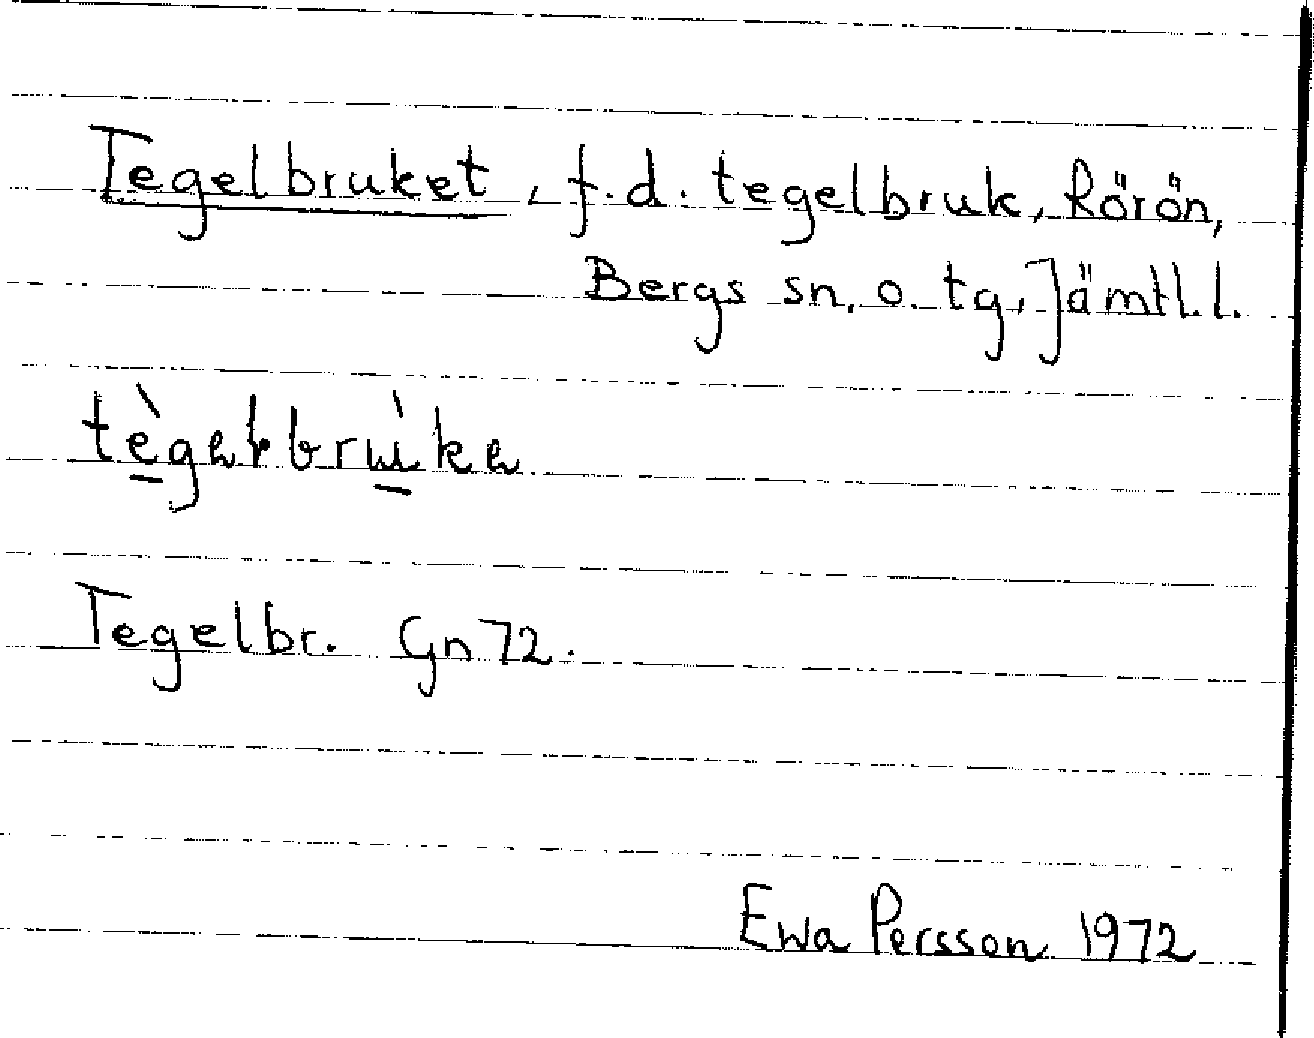 Tegelbruket, f.d. tegelbruk, Rörön,
Bergs sn. o. tg, Jämtl.l.
Tegelbr. Gn 72.
Ewa Persson 1972